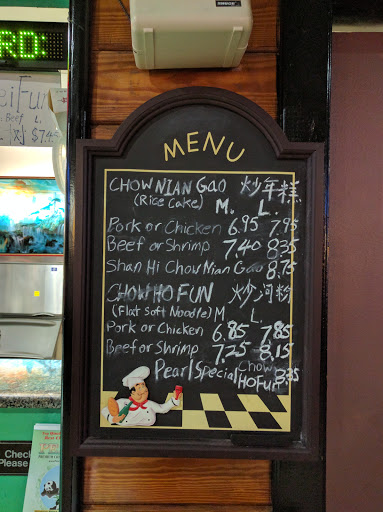 RD
ei Fun
Beef L.
$7.4
MENU
CHOW NIAN Gao 炒年糕
(Rice Cake) M. L.
Pork or Chicken 6.95 7.95
Beef or Shrimp 7.40 8.35
Shan Hi Chow Nian Gao 8.75
CHOW HO FUN 炒河粉
(Flat Soft Noodle) M L.
Pork or Chicken 6.85 7.85
Beef or Shrimp 7.25 8.15
Pearl Special Chow
HO Fun 8.35
Check
Please